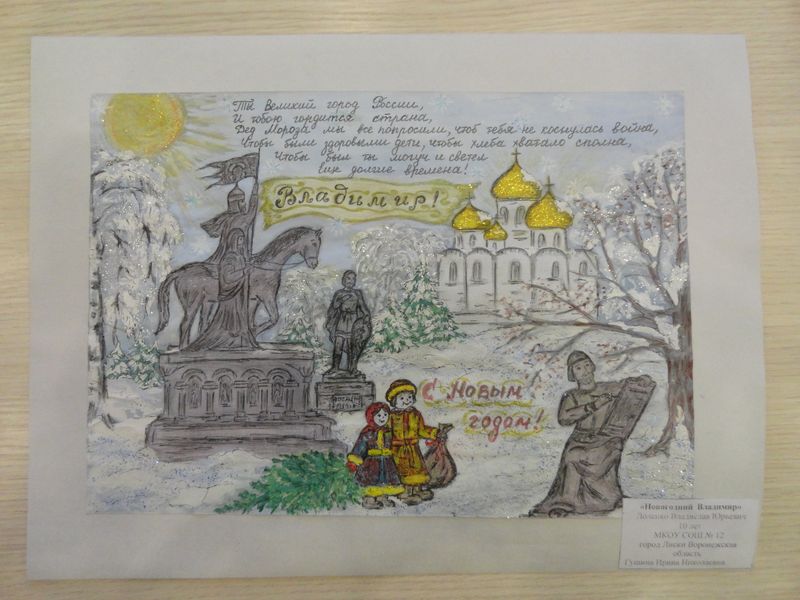 Ты великий город России,
И тобою гордится страна,
Дед Мороза мы все попросили, чтоб тебя не коснулась война,
Чтобы были здоровыми дети, чтобы хлеба хватало сполна,
Чтобы был ты могуч и светел
на долгие времена!
Владимир!
С Новым
годом!
«Новогодний Владимир»
Владислав Юрьевич
10 лет
МКОУ СОШ № 12
город Лиски Воронежская
область
Гушина Ирина Николаевна